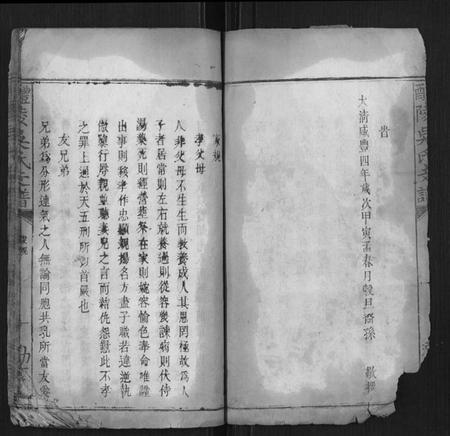 醴陵吳氏支譜
時
大淸咸豐四年歲次甲寅孟春月穀旦裔孫 敬撰
家規
孝父母
人非父母不生生而敎養成人其恩罔極故爲人
子者居常則左右就養過則從容幾諫病則伏侍
湯藥死則經營葬祭在家則婉容愉色奉命唯謹
出事則移孝作忠顯親揚名方盡子職若違逆執
傲陵行毆親聽妻兒之言而結仇怨懟此不孝
之罪上通於天五刑所以首嚴也
友兄弟
兄弟爲分形連氣之人無論同胞共乳所當友愛
醴陵吳氏支譜
家規